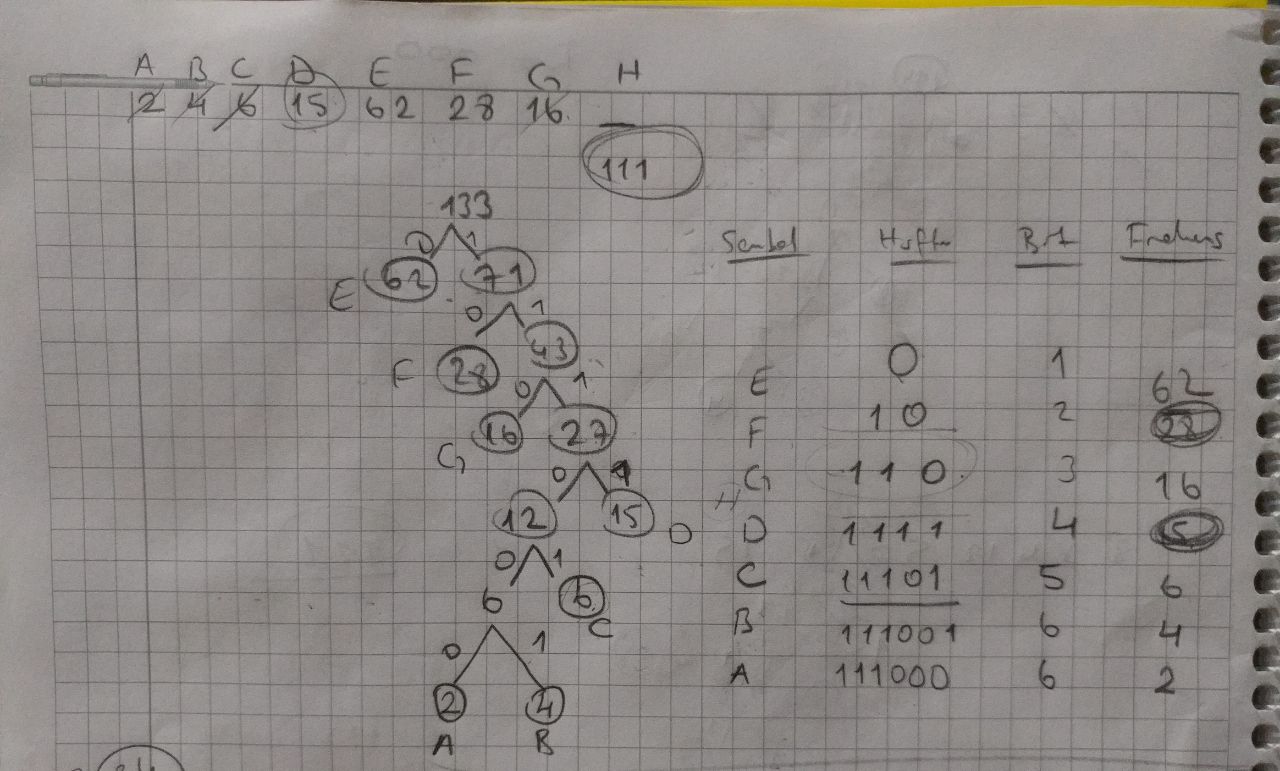 A B C D E F G H
2 4 6 15 62 28 16
111
133
0 1
E 62 71
0 1
F 28 43
0 1
G 16 27
0 1
12 15 D
0 1
6 6 C
0 1
2 4
A B
Sembol Huffman Bit Frekans
E 0 1 62
F 10 2 28
G 110 3 16
H
D 1111 4 15
C 11101 5 6
B 111001 6 4
A 111000 6 2